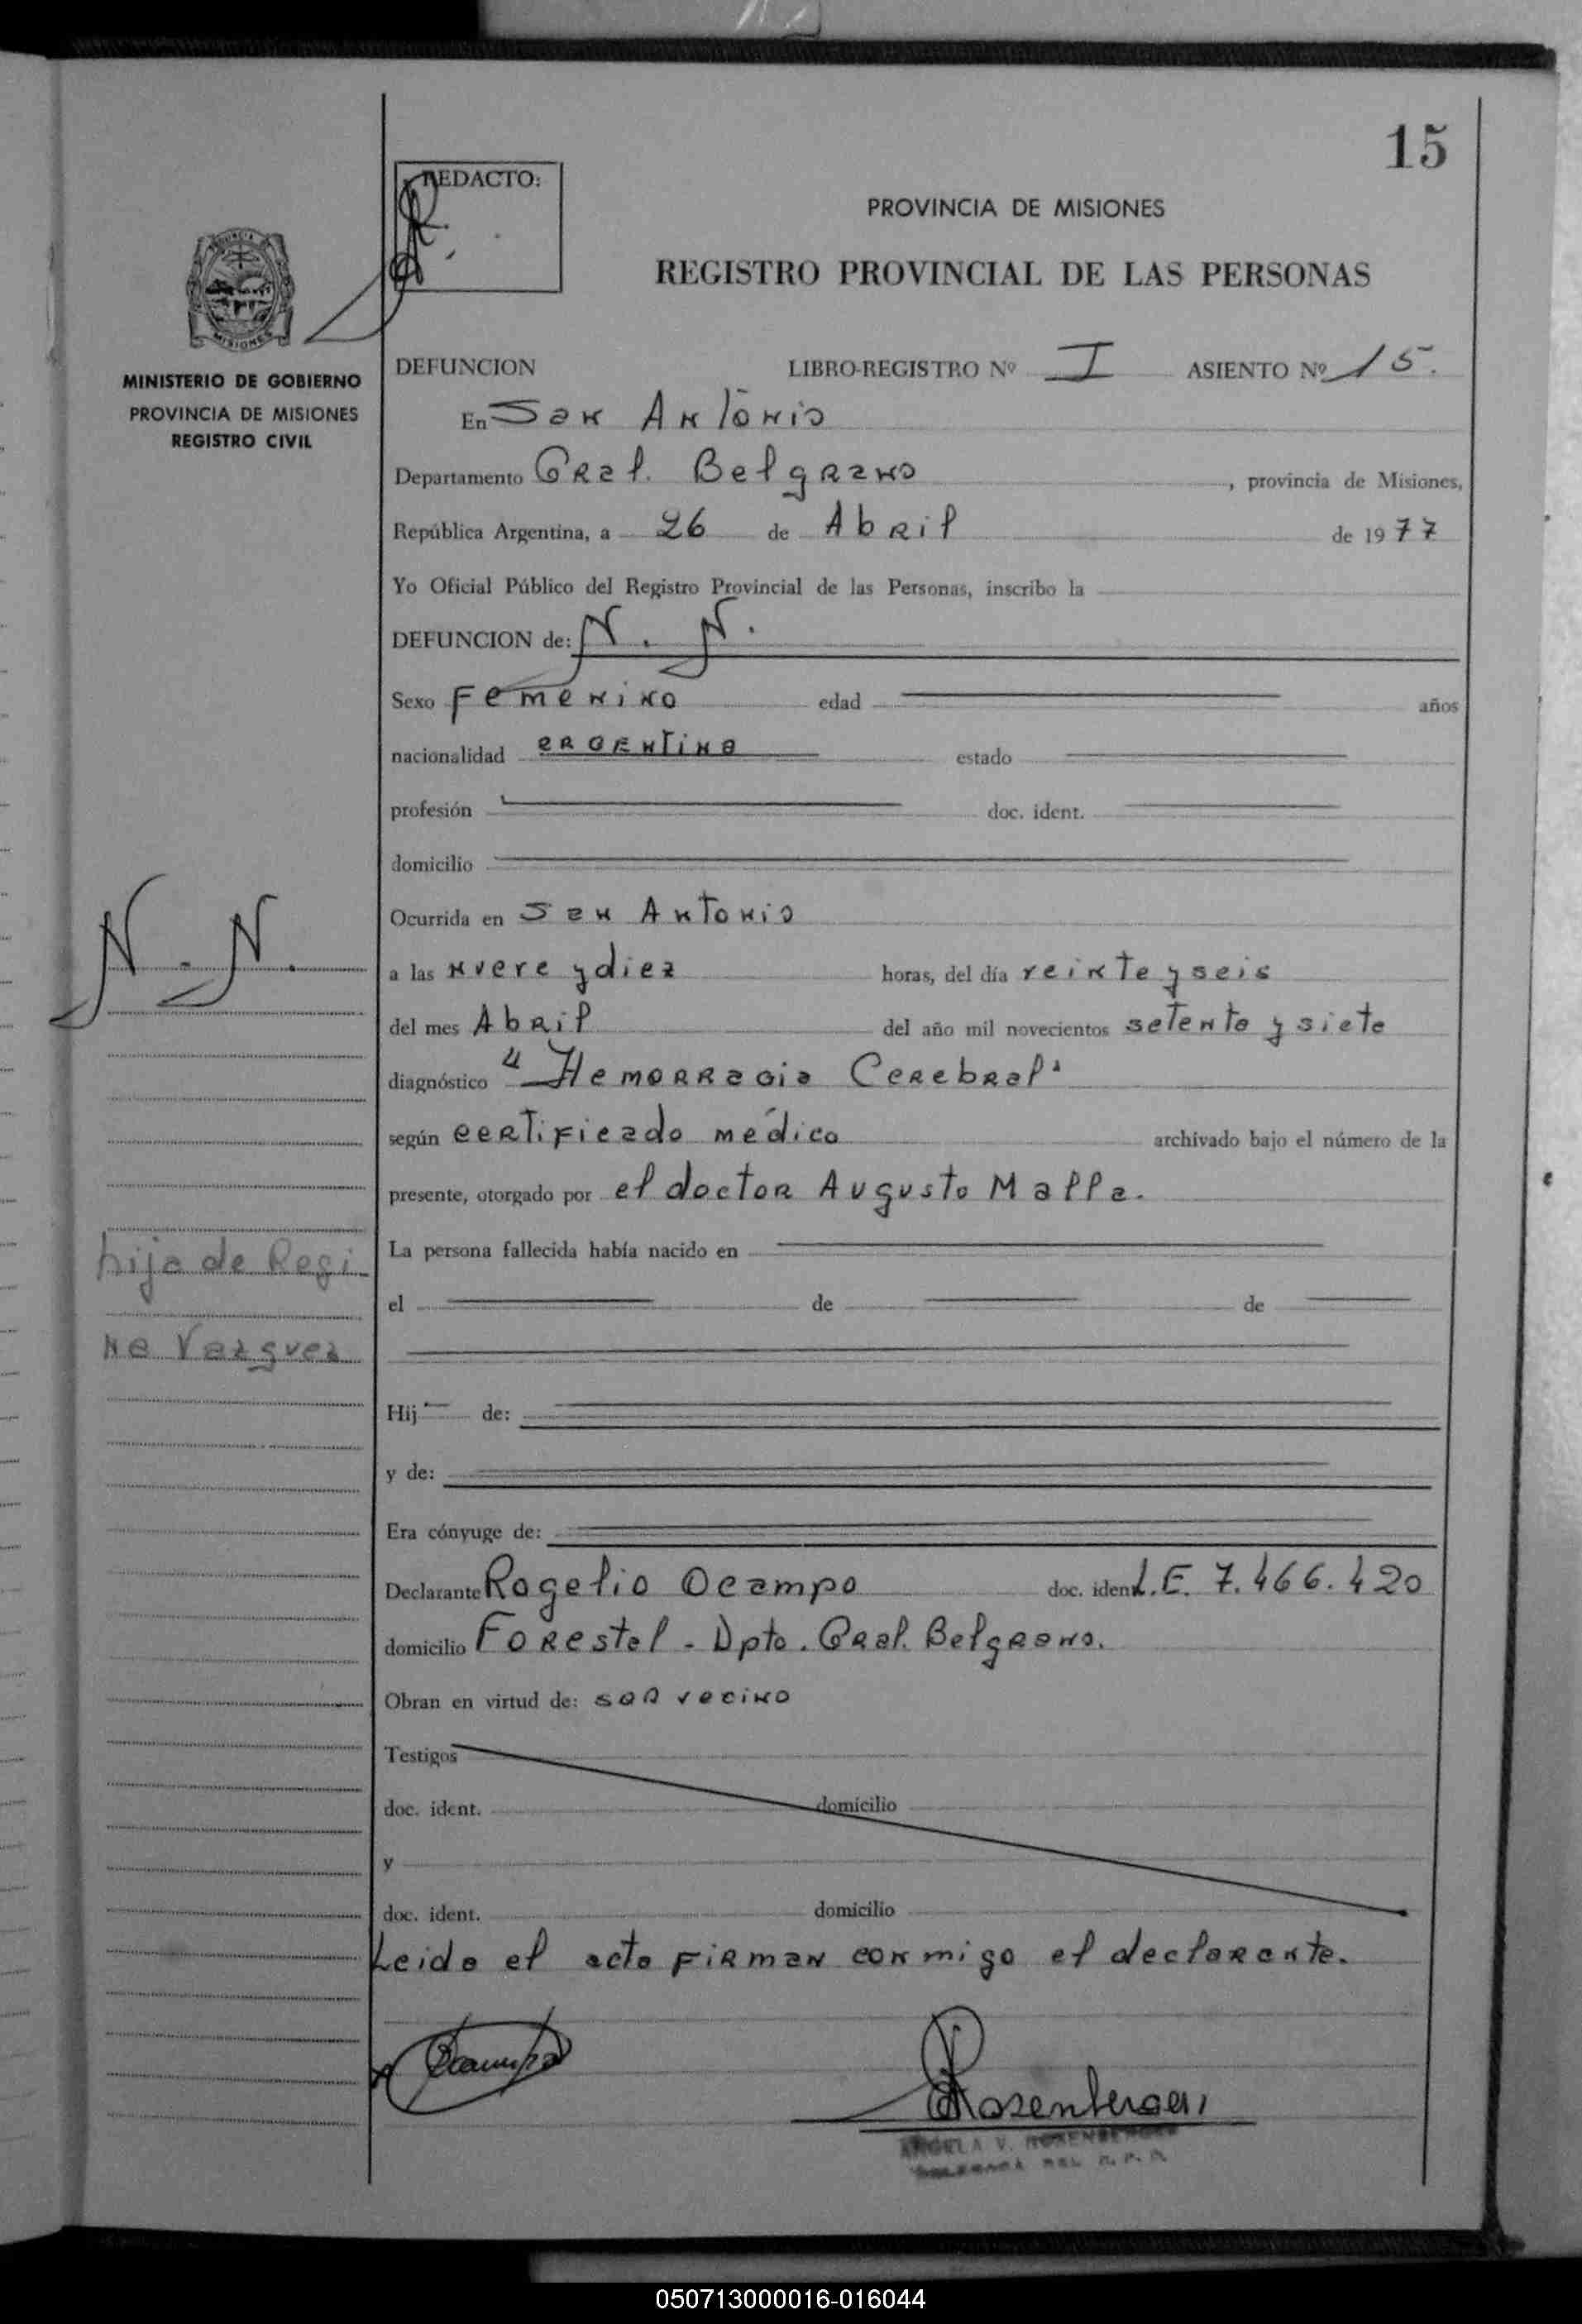 15
REDACTO:
PROVINCIA DE MISIONES
REGISTRO PROVINCIAL DE LAS PERSONAS
MISIONES
MINISTERIO DE GOBIERNO
PROVINCIA DE MISIONES
REGISTRO CIVIL
DEFUNCION LIBRO-REGISTRO Nº I ASIENTO Nº 15.
En San Antonio
Departamento Gral. Belgrano, provincia de Misiones,
República Argentina, a 26 de Abril de 1977
Yo Oficial Público del Registro Provincial de las Personas, inscribo la
DEFUNCION de: N. N.
Sexo Femenino edad años
nacionalidad argentina estado
profesión doc. ident.
domicilio
N. N.
Ocurrida en San Antonio
a las nueve y diez horas, del día veinte y seis
del mes Abril del año mil novecientos setenta y siete
diagnóstico "Hemorragia Cerebral"
según certificado médico archivado bajo el número de la
presente, otorgado por el doctor Augusto Malla.
hija de Regi-
na Vazquez
La persona fallecida había nacido en
el de de
Hij de:
y de:
Era cónyuge de:
Declarante Rogelio Ocampo doc. ident L.E. 7.466.420
domicilio Forestal - Dpto. Gral. Belgrano.
Obran en virtud de: ser vecino
Testigos
doc. ident. domicilio
y
doc. ident. domicilio
Leida el acta firman conmigo el declarante.
Ocampo
Rosenberger
ANGELA V. ROSENBERGER
DELEGADA DEL R. P. P.
050713000016-016044